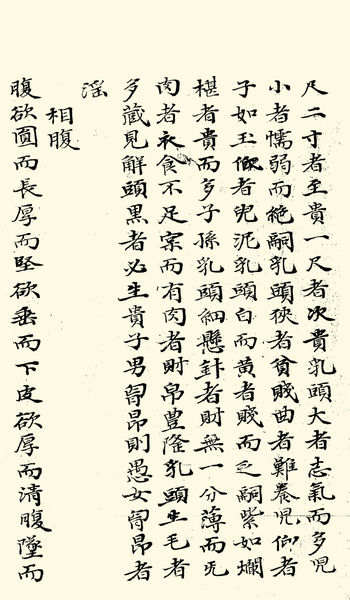 尺二寸者至貴一尺者次貴乳頭大者志氣而多児
小者懦弱而絶嗣乳頭狹者貧賤曲者難養児仰者
子如玉倰者児泥乳頭白而黄者賤而乏嗣紫如爛
椹者貴而多子孫乳頭細懸針者財無一分薄而旡
肉者衣食不足宲而有肉者財帛豊隆乳頭生毛者
多藏見解頭黒者必生貴子男胷昂則愚女胷昂者
淫
相腹
腹欲圎而長厚而堅欲垂而下皮欲厚而清腹墜而